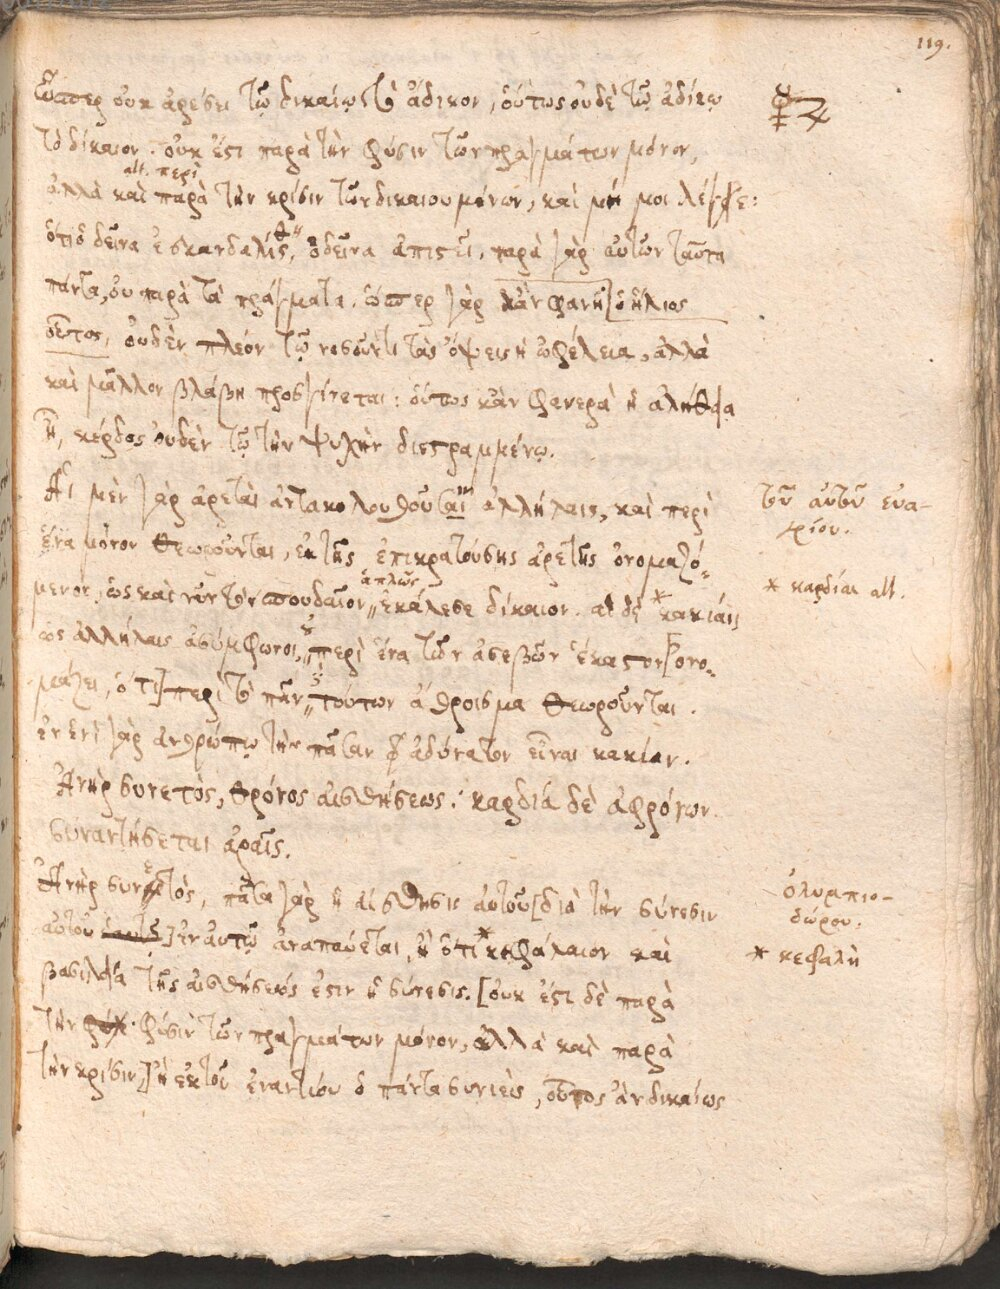 119.
ὥσπερ οὐκ ἀρέσει τῷ δικαίῳ τὸ ἄδικον, οὕτως οὐδὲ τῷ ἀδίκῳ
τὸ δίκαιον. οὐκ ἔστι παρὰ τὴν φύσιν τῶν πραγμάτων μόνον,
alt. περὶ
ἀλλὰ καὶ παρὰ τὴν κρίσιν τῶν δικαιουμένων, καὶ μή μοι λέγε:
ὅτι ὁ δεῖνα ἐσκανδαλίσθη, ὁ δεῖνα ἀπιστεῖ, παρὰ γὰρ αὐτῶν ταῦτα
πάντα, οὐ παρὰ τὰ πράγματα. ὥσπερ γὰρ κἂν φανῇ [ὁ ἥλιος
οὗτος, οὐδὲν πλέον τῷ νοσοῦντι τὰς ὄψεις ἡ ὠφέλεια, ἀλλὰ
καὶ μᾶλλον βλάβη προσγίνεται: οὕτως κἂν φανερὰ ἡ ἀλήθεια
ᾖ, κέρδος οὐδὲν τῷ τὴν ψυχὴν διεστραμμένῳ.
Αἱ μὲν γὰρ ἀρεταὶ ἀντακολουθοῦσιν ἀλλήλαις, καὶ περὶ
τοῦ αὐτοῦ εὐα-
γρίου.
ἕνα μόνον θεωροῦνται, ἐκ τῆς ἐπικρατούσης ἀρετῆς ὀνομαζό-
ἁπλῶς
μενον, ὡς καὶ νῦν τὸν σπουδαῖον ἐκάλεσε δίκαιον. αἱ δὲ * κακίαι
* καρδίαι alt.
ὡς ἀλλήλαις ἀσύμφωνοι, περὶ ἕνα τῶν ἀσεβῶν ἕκαστον [ὀνο-
μάζει, ὅτι] περὶ τὸ πᾶν τούτων ἄθροισμα θεωροῦνται.
ἐν ἑνὶ γὰρ ἀνθρώπῳ τὴν πᾶσαν ἀδύνατον εἶναι κακίαν.
Ἀνὴρ συνετὸς, θρόνος αἰσθήσεως. καρδία δὲ ἀφρόνων
συναντήσεται ἀραῖς.
Ἀνὴρ συνετὸς, πᾶσα γὰρ ἡ αἴσθησις αὐτοῦ [διὰ τὴν σύνεσιν
ὀλυμπιο-
δώρου.
αὐτοῦ] ἐν αὐτῷ ἀναπαύεται, ἢ ὅτι * κεφάλαιον καὶ
* κεφαλὴ
βασιλεία τῆς αἰσθήσεώς ἐστιν ἡ σύνεσις. [οὐκ ἔστι δὲ παρὰ
τὴν φύσιν τῶν πραγμάτων μόνον, ἀλλὰ καὶ παρὰ
τὴν κρίσιν.] ἢ ἐκ τοῦ ἐναντίου ὁ πάντα συνιεὶς, οὗτος ἂν δικαίως